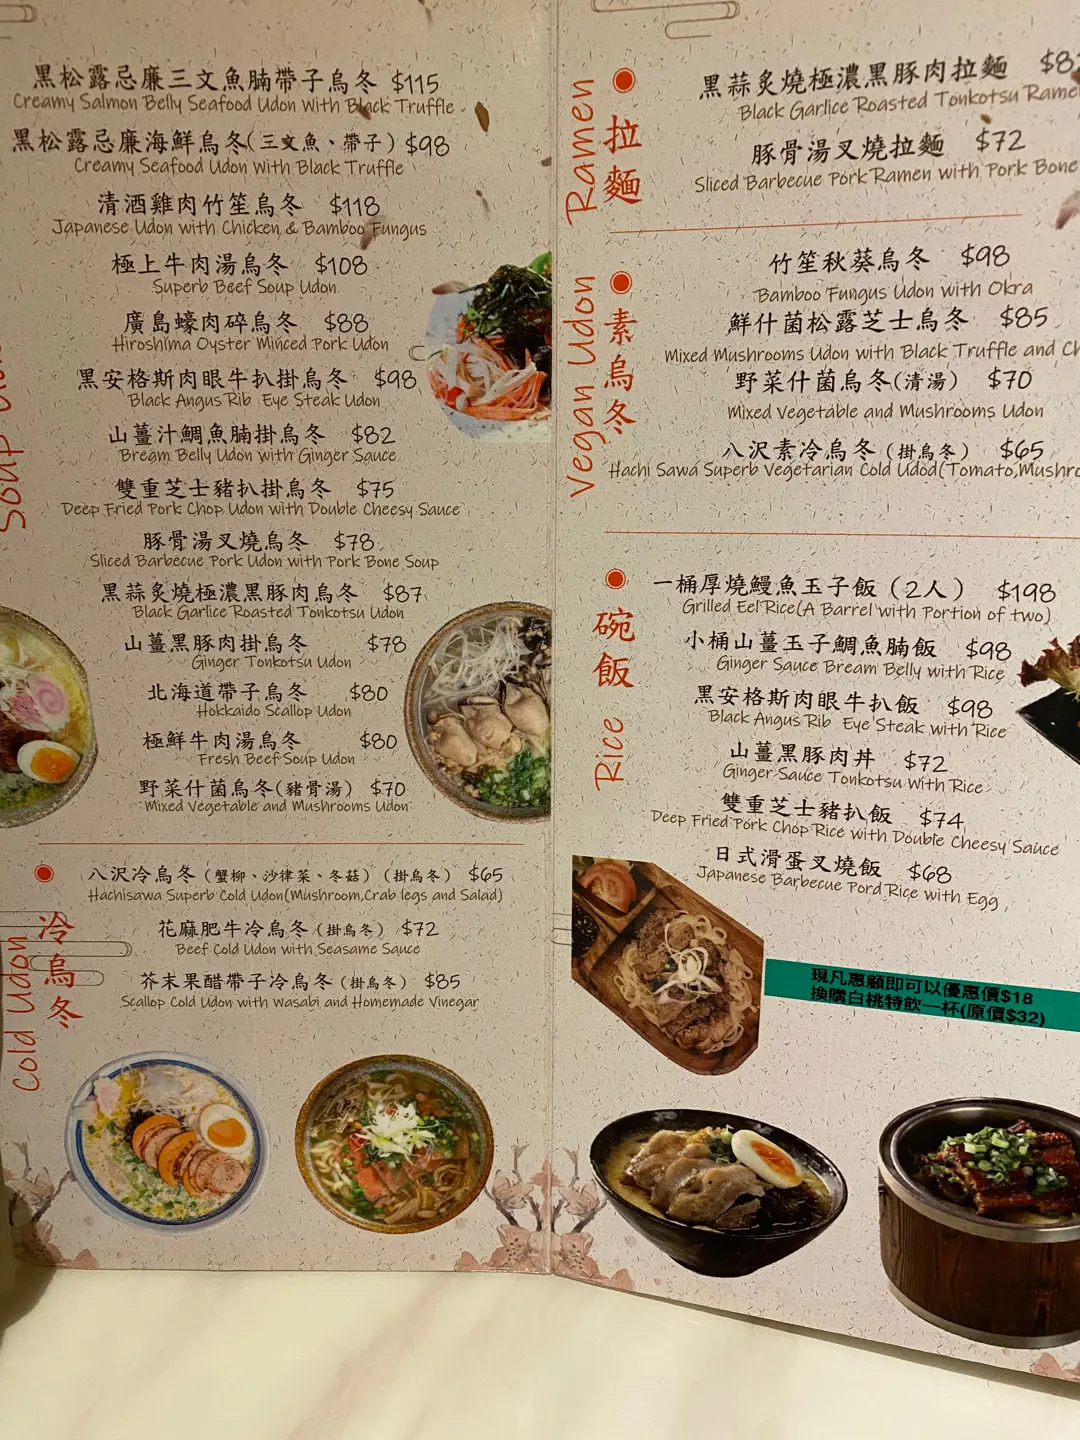 黑松露忌廉三文魚腩帶子烏冬 $115
Creamy Salmon Belly Seafood Udon with Black Truffle
黑松露忌廉海鮮烏冬(三文魚、帶子) $98
Creamy Seafood Udon with Black Truffle
清酒雞肉竹笙烏冬 $118
Japanese Udon with Chicken & Bamboo Fungus
極上牛肉湯烏冬 $108
Superb Beef Soup Udon
廣島蠔肉碎烏冬 $88
Hiroshima Oyster Minced Pork Udon
黑安格斯肉眼牛扒掛烏冬 $98
Black Angus Rib Eye Steak Udon
山薑汁鯛魚腩掛烏冬 $82
Bream Belly Udon with Ginger Sauce
雙重芝士豬扒掛烏冬 $75
Deep Fried Pork Chop Udon with Double Cheesy Sauce
豚骨湯叉燒烏冬 $78
Sliced Barbecue Pork Udon with Pork Bone Soup
黑蒜炙燒極濃黑豚肉烏冬 $87
Black Garlice Roasted Tonkotsu Udon
山薑黑豚肉掛烏冬 $78
Ginger Tonkotsu Udon
北海道帶子烏冬 $80
Hokkaido Scallop Udon
極鮮牛肉湯烏冬 $80
Fresh Beef Soup Udon
野菜什菌烏冬(豬骨湯) $70
Mixed Vegetable and Mushrooms Udon
Soup
冷烏冬
Cold Udon
八沢冷烏冬(蟹柳、沙律菜、冬菇)(掛烏冬) $65
Hachisawa Superb Cold Udon(Mushroom,Crab legs and Salad)
花麻肥牛冷烏冬(掛烏冬) $72
Beef Cold Udon with Seasame Sauce
芥末果醋帶子冷烏冬(掛烏冬) $85
Scallop Cold Udon with Wasabi and Homemade Vinegar
Ramen
拉麵
黑蒜炙燒極濃黑豚肉拉麵
Black Garlice Roasted Tonkotsu Rame
豚骨湯叉燒拉麵 $72
Sliced Barbecue Pork Ramen with Pork Bone
Vegan Udon
素烏冬
竹笙秋葵烏冬 $98
Bamboo Fungus Udon with Okra
鮮什菌松露芝士烏冬 $85
Mixed Mushrooms Udon with Black Truffle and Ch
野菜什菌烏冬(清湯) $70
Mixed Vegetable and Mushrooms Udon
八沢素冷烏冬(掛烏冬) $65
Hachi Sawa Superb Vegetarian Cold Udod(Tomato,Mushro
碗飯
Rice
一桶厚燒鰻魚玉子飯(2人) $198
Grilled Eel Rice(A Barrel with Portion of two)
小桶山薑玉子鯛魚腩飯 $98
Ginger Sauce Bream Belly with Rice
黑安格斯肉眼牛扒飯 $98
Black Angus Rib Eye Steak with Rice
山薑黑豚肉丼 $72
Ginger Sauce Tonkotsu with Rice
雙重芝士豬扒飯 $74
Deep Fried Pork Chop Rice with Double Cheesy Sauce
日式滑蛋叉燒飯 $68
Japanese Barbecue Pord Rice with Egg
現凡惠顧即可以優惠價$18
換購白桃特飲一杯(原價$32)